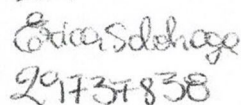 Erica Solohaga
29737838